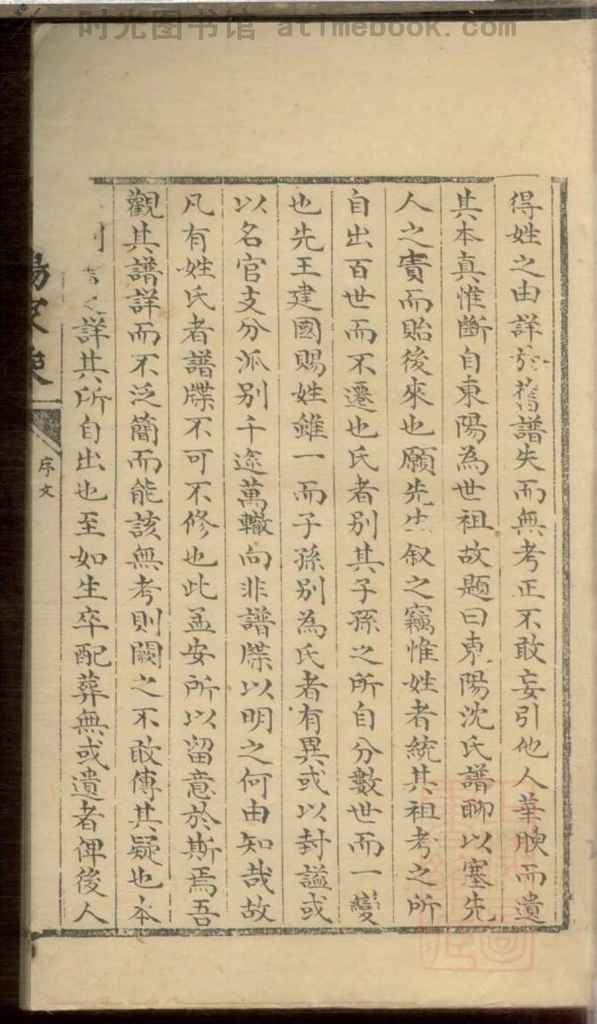 时光图书馆 atimebook.com
得姓之由詳於舊譜失而無考正不敢妄引他人華腴而遺
其本真惟斷自東陽為世祖故題曰東陽沈氏譜聊以塞先
人之責而貽後來也願先生叙之竊惟姓者統其祖考之所
自出百世而不遷也氏者別其子孫之所自分數世而一變
也先王建國賜姓雖一而子孫別為氏者有異或以封謚或
以名官支分派别千途萬轍向非譜牒以明之何由知哉故
凡有姓氏者譜牒不可不修也此孟安所以留意於斯焉吾
觀其譜詳而不泛簡而能該無考則闕之不敢傳其疑也本
詳其所自出也至如生卒配葬無或遺者俾後人
序文